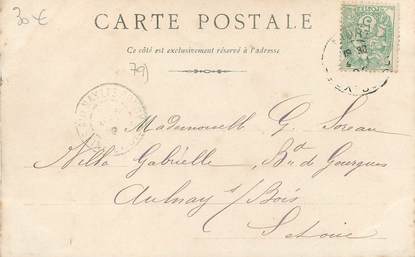 30 €
CARTE POSTALE
Ce côté est exclusivement réservé à l'adresse
79)
Mademoiselle G. Soreau
Villa Gabrielle, Bd de Gourgues
Aulnay s/ Bois
S et Oise